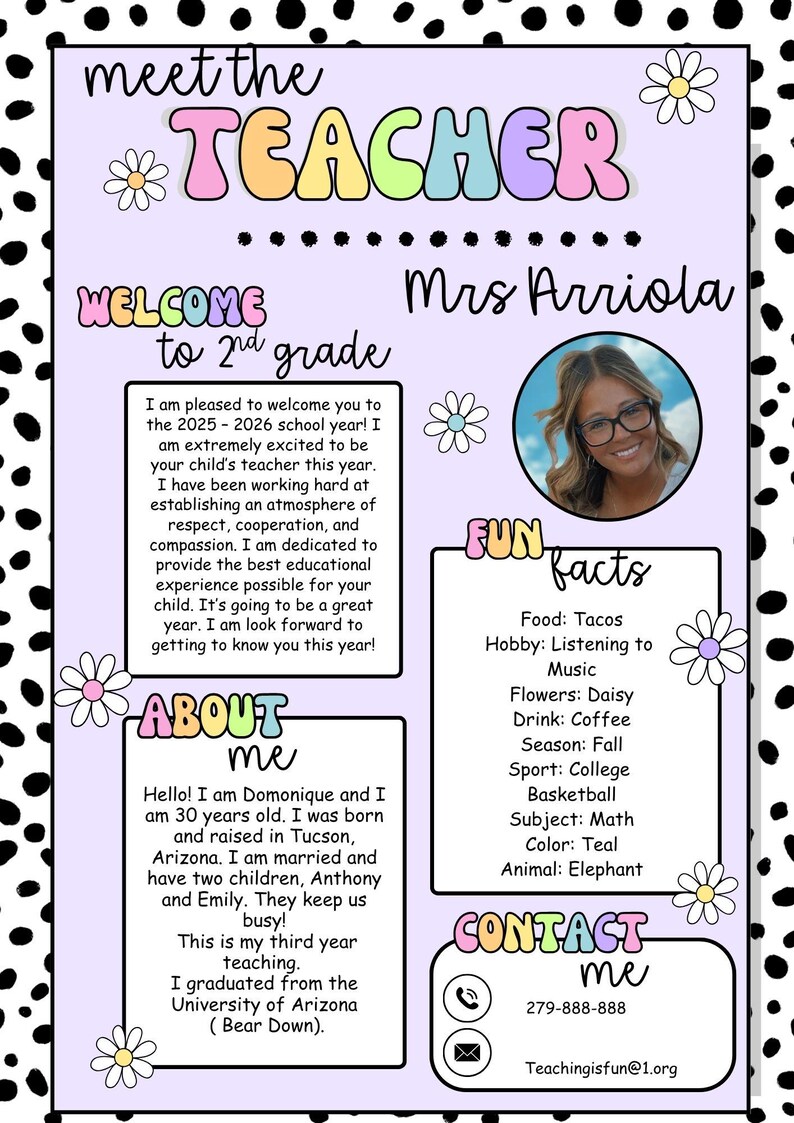 meet the
TEACHER
Mrs Arriola
WELCOME
to 2nd grade
I am pleased to welcome you to
the 2025 – 2026 school year! I
am extremely excited to be
your child's teacher this year.
I have been working hard at
establishing an atmosphere of
respect, cooperation, and
compassion. I am dedicated to
provide the best educational
experience possible for your
child. It's going to be a great
year. I am look forward to
getting to know you this year!
FUN
facts
Food: Tacos
Hobby: Listening to
Music
Flowers: Daisy
Drink: Coffee
Season: Fall
Sport: College
Basketball
Subject: Math
Color: Teal
Animal: Elephant
ABOUT
me
Hello! I am Domonique and I
am 30 years old. I was born
and raised in Tucson,
Arizona. I am married and
have two children, Anthony
and Emily. They keep us
busy!
This is my third year
teaching.
I graduated from the
University of Arizona
( Bear Down).
CONTACT
me
279-888-888
Teachingisfun@1.org